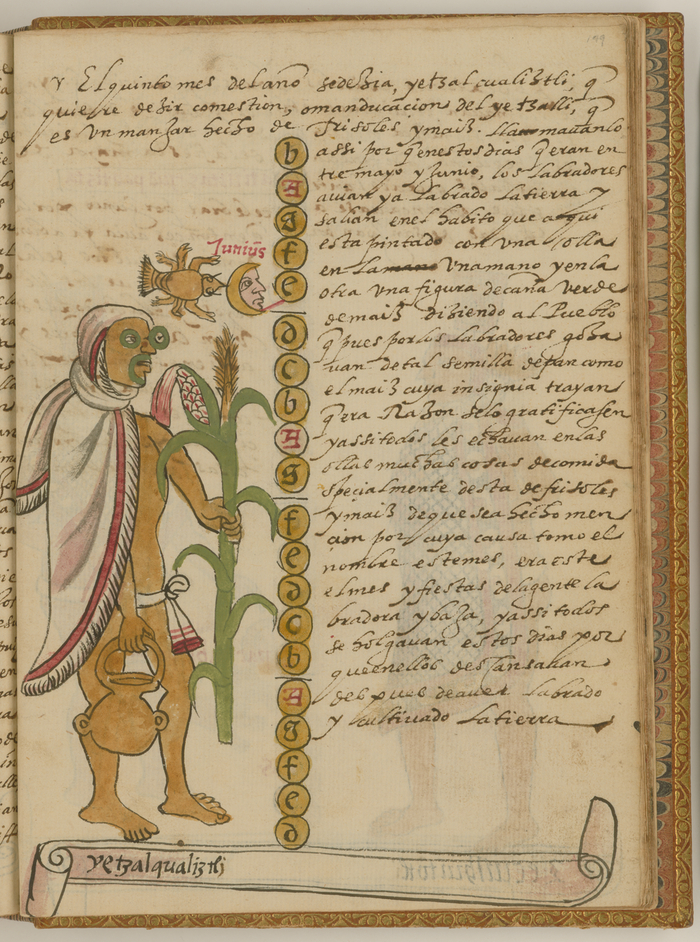 199
Y El quinto mes del año sedezia, yetzalcualiztli, q̄
quiere dezir comestion, o manducacion del yetzalli, q̄
es vn manjar hecho de frisoles y maiz. llamauanlo
assi por q̄ en estos dias q̄ eran en
tre mayo y Junio, los labradores
auian ya labrado la tierra y
salian en el habito que aqui
esta pintado con vna olla
en vna mano y en la
otra vna figura de caña verde
de maiz diziendo al Pueblo
q̄ pues por los labradores goza
uan de tal semilla de pan como
el maiz cuya insignia trayan
q̄ era Razon se lo gratificasen
y assi todos les echauan en las
ollas muchas cosas de comida
specialmente desta de frisoles
y maiz de que se a hecho men
cion por cuya causa tomo el
nombre este mes, era este
el mes y fiestas de la gente la
bradora y baxa, y assi todos
se holgauan estos dias por
que en ellos descansauan
despues de auer labrado
y cultiuado la tierra
Junius
b
A
g
f
e
d
c
b
A
g
f
e
d
c
b
A
g
f
e
d
yetzalqualiztli